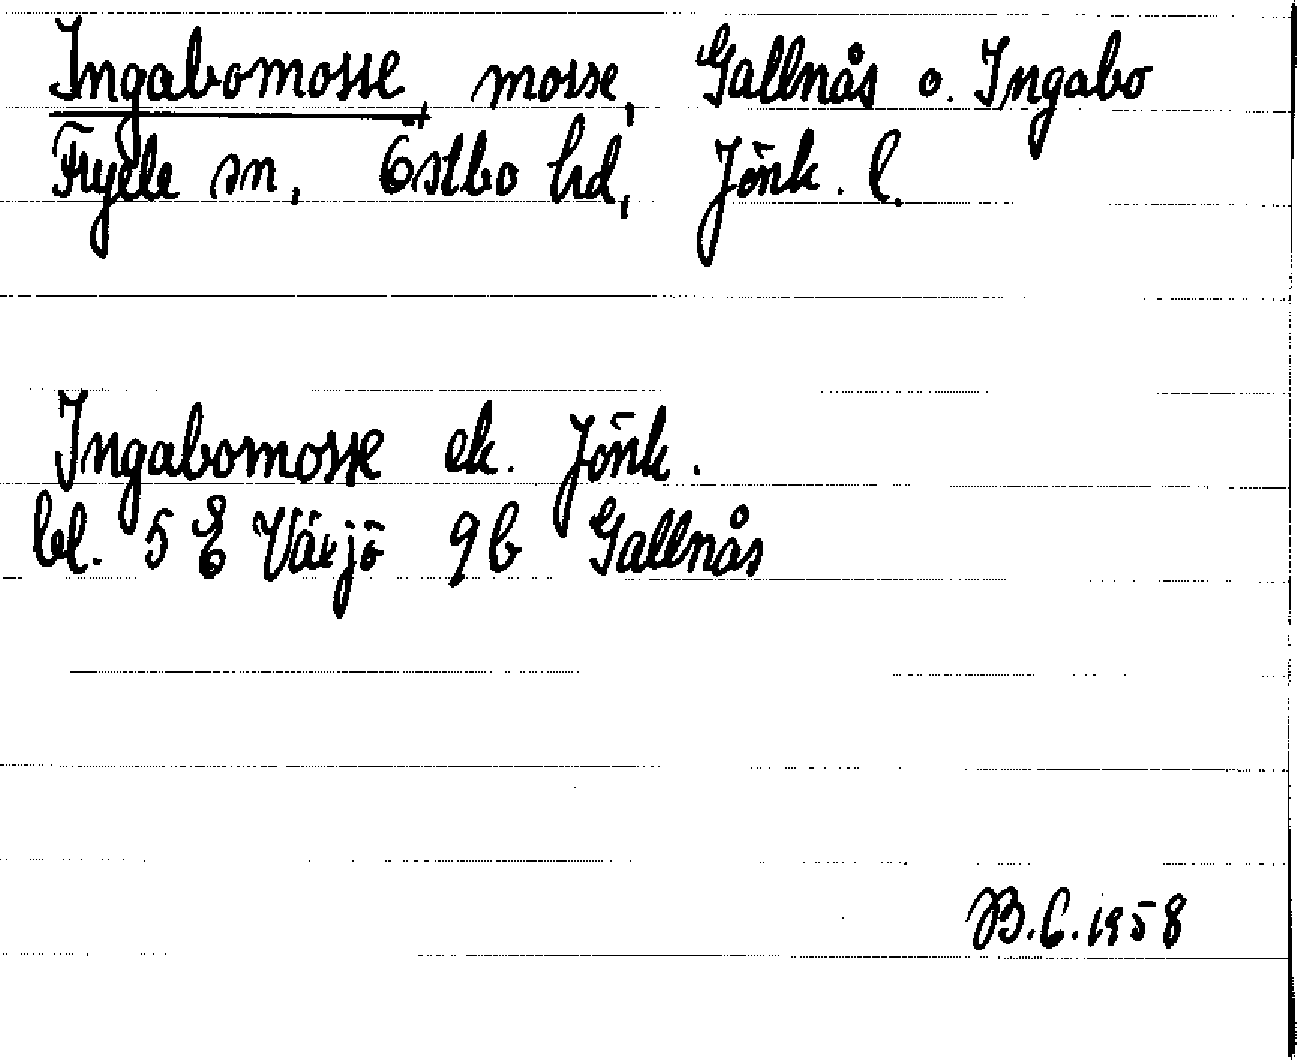 Ingabomosse, mosse, Gallnås o. Ingabo
Fryele sn, Östbo hd, Jönk. l.
Ingabomosse ek. Jönk.
bl. 5 E Växjö 9b Gallnås
B.C. 1958